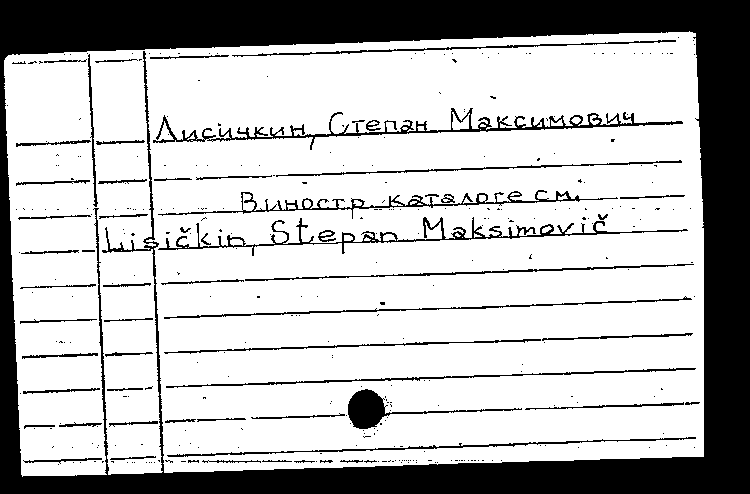 Лисичкин, Степан Максимович
В иностр. каталоге см.
Lisičkin, Stepan Maksimovič